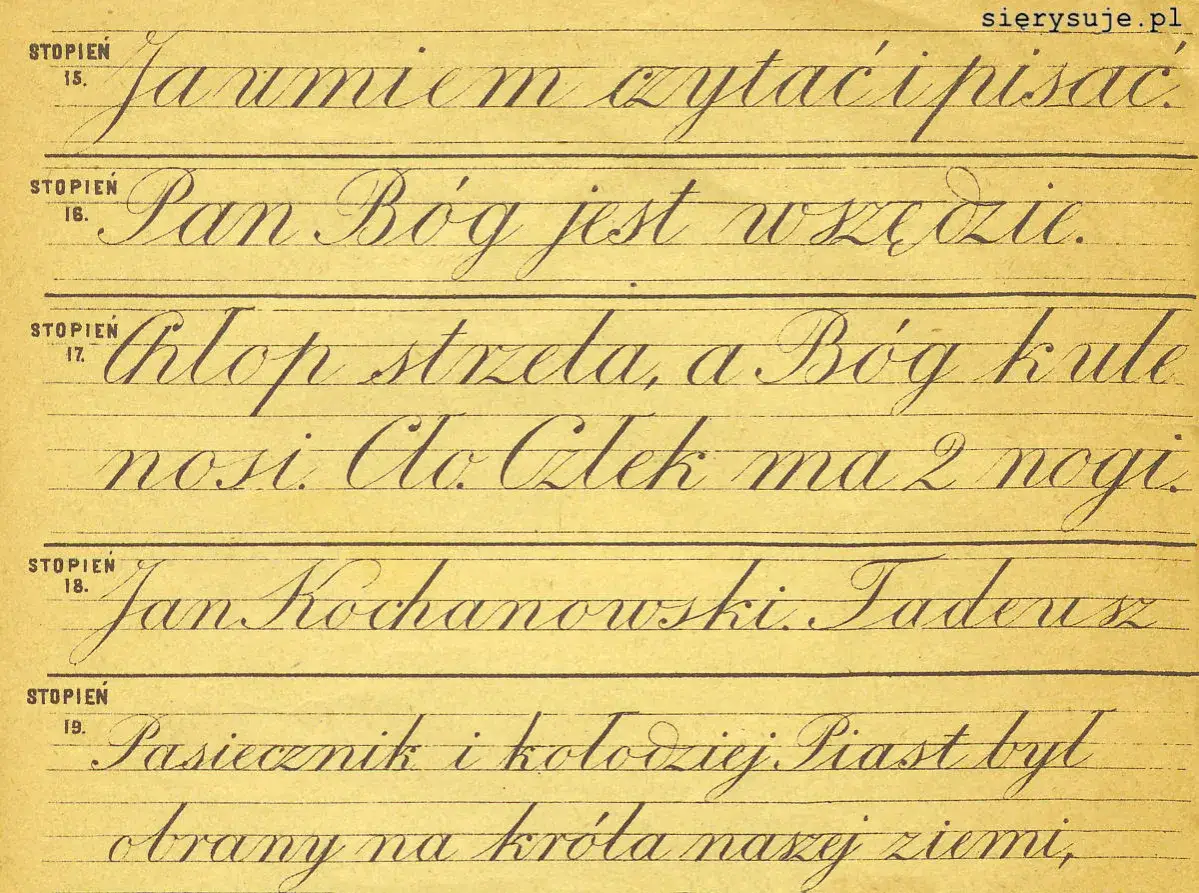 sięrysuje.pl
STOPIEŃ 15. Ja umiem czytać i pisać.
STOPIEŃ 16. Pan Bóg jest wszędzie.
STOPIEŃ 17. Chłop strzela, a Bóg kule
nosi. Cło. Człek ma 2 nogi.
STOPIEŃ 18. Jan Kochanowski. Tadeusz
STOPIEŃ 19. Pasiecznik i kołodziej Piast był
obrany na króla naszej ziemi,